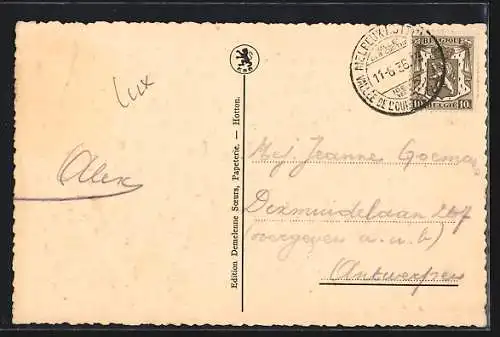 lux
Alex
Edition Demelenne Sœurs, Papeterie. — Hotton.
11-6 36
VALLÉE DE L'OURTHE
BELGIQUE
10 BELGIË 10
Mej Jeanne Goeman
Dexmuidelaan 267
(overgeven a.u.b)
Antwerpen